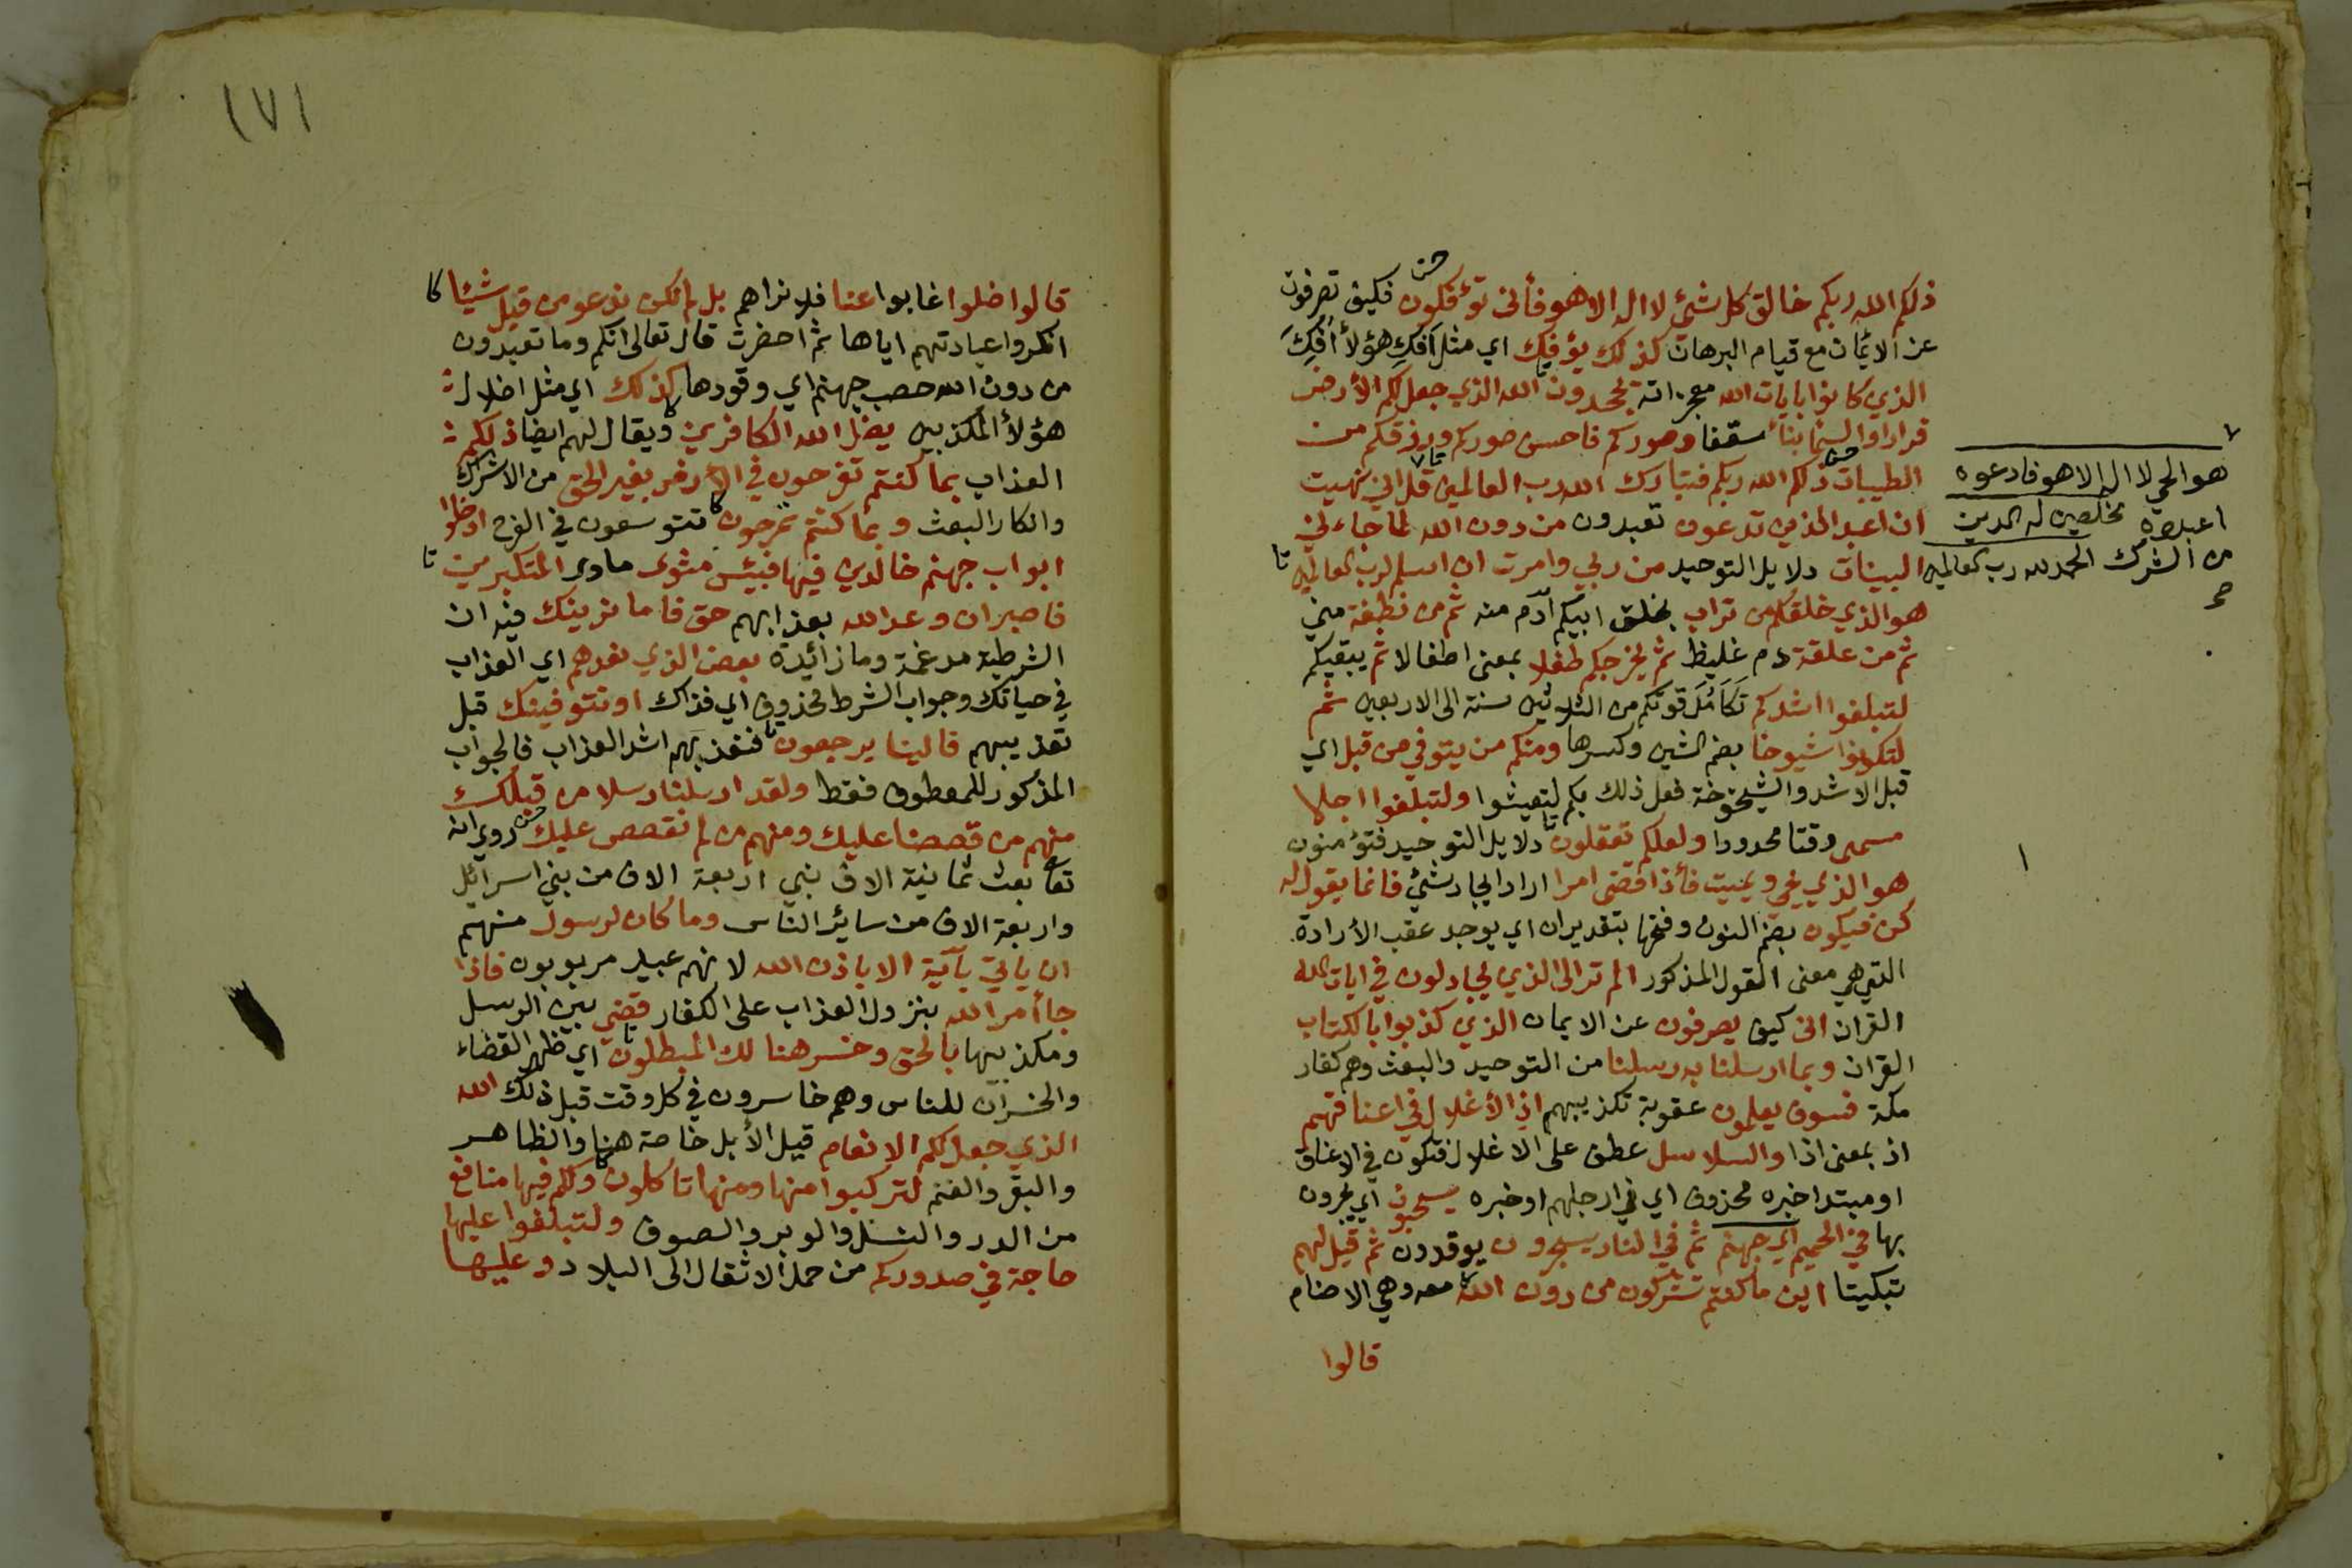 ذلكم الله ربكم خالق كل شئ لا اله الا هو فأنى تؤفكون فكيف تصرفون
عن الأيمان مع قيام البرهان كذلك يؤفك اي مثل افك هؤلأ افك
الذي كانوا بايات الله معجزاته يجحدون الله الذي جعل لكم الأرض
قرارا والسما بنأ سقفا وصوركم فاحسن صوركم ورزقكم من
الطيبات ذلكم الله ربكم فتبارك الله رب العالمين قل اني نهيت
ان اعبد الذين تدعون تعبدون من دون الله لما جاءني
البينات دلايل التوحيد من ربي وامرت ان اسلم لرب العالمين
هو الذي خلقكم من تراب بخلق ابيكم آدم منه ثم من نطفة مني
ثم من علقة دم غليظ ثم يخرجكم طفلا بمعنى اطفالا ثم يبقيكم
لتبلغوا اشدكم تكامل قوتكم من الثلاثين سنة الى الاربعين ثم
لتكونوا شيوخا بضم الشين وكسرها ومنكم من يتوفي من قبل اي
قبل الاشد والشيخوخة فعل ذلك بكم لتعيشوا ولتبلغوا اجلا
مسمى وقتا محدودا ولعلكم تعقلون دلايل التوحيد فتؤمنون
هو الذي يحي ويميت فأذا قضى امرا اراد ايجاد شئ فانما يقول له
كن فيكون بضم النون وفتحها بتقدير ان اي يوجد عقب الأرادة
التي هي معنى القول المذكور الم تر الى الذي يجادلون في ايات الله
القران انى كيف يصرفون عن الايمان الذي كذبوا بالكتاب
القران وبما ارسلنا به رسلنا من التوحيد والبعث وهم كفار
مكة فسوف يعلمون عقوبة تكذيبهم اذ الأغلال في اعناقهم
اذ بمعنى اذا والسلاسل عطف على الاغلال فتكون في الاعناق
او مبتدا خبره محذوف اي في ارجلهم او خبره يسحبون اي يجرون
بها في الحميم اي جهنم ثم في النار يسجرون يوقدون ثم قيل لهم
تبكيتا اين ما كنتم تشركون من دون الله معه وهي الاصنام
قالوا
هو الحي لا اله الا هو فادعوه
اعبدوه مخلصين له الدين
من الشرك الحمد لله رب العالمين
١٧١
قالوا ضلوا غابوا عنا فلا نراهم بل لم نكن ندعو من قبل شيئا
انكروا عبادتهم اياها ثم احضرت قال تعالى انكم وما تعبدون
من دون الله حصب جهنم اي وقودها كذلك اي مثل اضلال
هؤلأ المكذبين يضل الله الكافرين ويقال لهم ايضا ذلكم
العذاب بما كنتم تفرحون في الأرض بغير الحق من الاشراك
وانكار البعث وبما كنتم تمرحون تتوسعون في الفرح ادخلوا
ابواب جهنم خالدين فيها فبئس مثوى ماوى المتكبرين
فاصبر ان وعد الله بعذابهم حق فاما نرينك فيه ان
الشرطية مدغمة وما زائدة بعض الذي نعدهم اي العذاب
في حياتك وجواب الشرط محذوف اي فذاك او نتوفينك قبل
تعذيبهم فالينا يرجعون فنعذبهم اشد العذاب فالجواب
المذكور للمعطوف فقط ولقد ارسلنا رسلا من قبلك
منهم من قصصنا عليك ومنهم من لم نقصص عليك روي انه
تعا بعث ثمانية الاف نبي اربعة الاف من بني اسرائل
واربعة الاف من ساير الناس وما كان لرسول منهم
ان ياتي بآية الا باذن الله لانهم عبيد مربوبون فاذا
جا أمر الله بنزول العذاب على الكفار قضي بين الرسل
ومكذبيها بالحق وخسر هنالك المبطلون اي ظهر القضاء
والخسران للناس وهم خاسرون في كل وقت قبل ذلك الله
الذي جعل لكم الانعام قيل الأبل خاصة هنا والظاهر
والبقر والغنم لتركبوا منها ومنها تاكلون ولكم فيها منافع
من الدر والنسل والوبر والصوف ولتبلغوا عليها
حاجة في صدوركم من حمل الاثقال الى البلاد وعليها